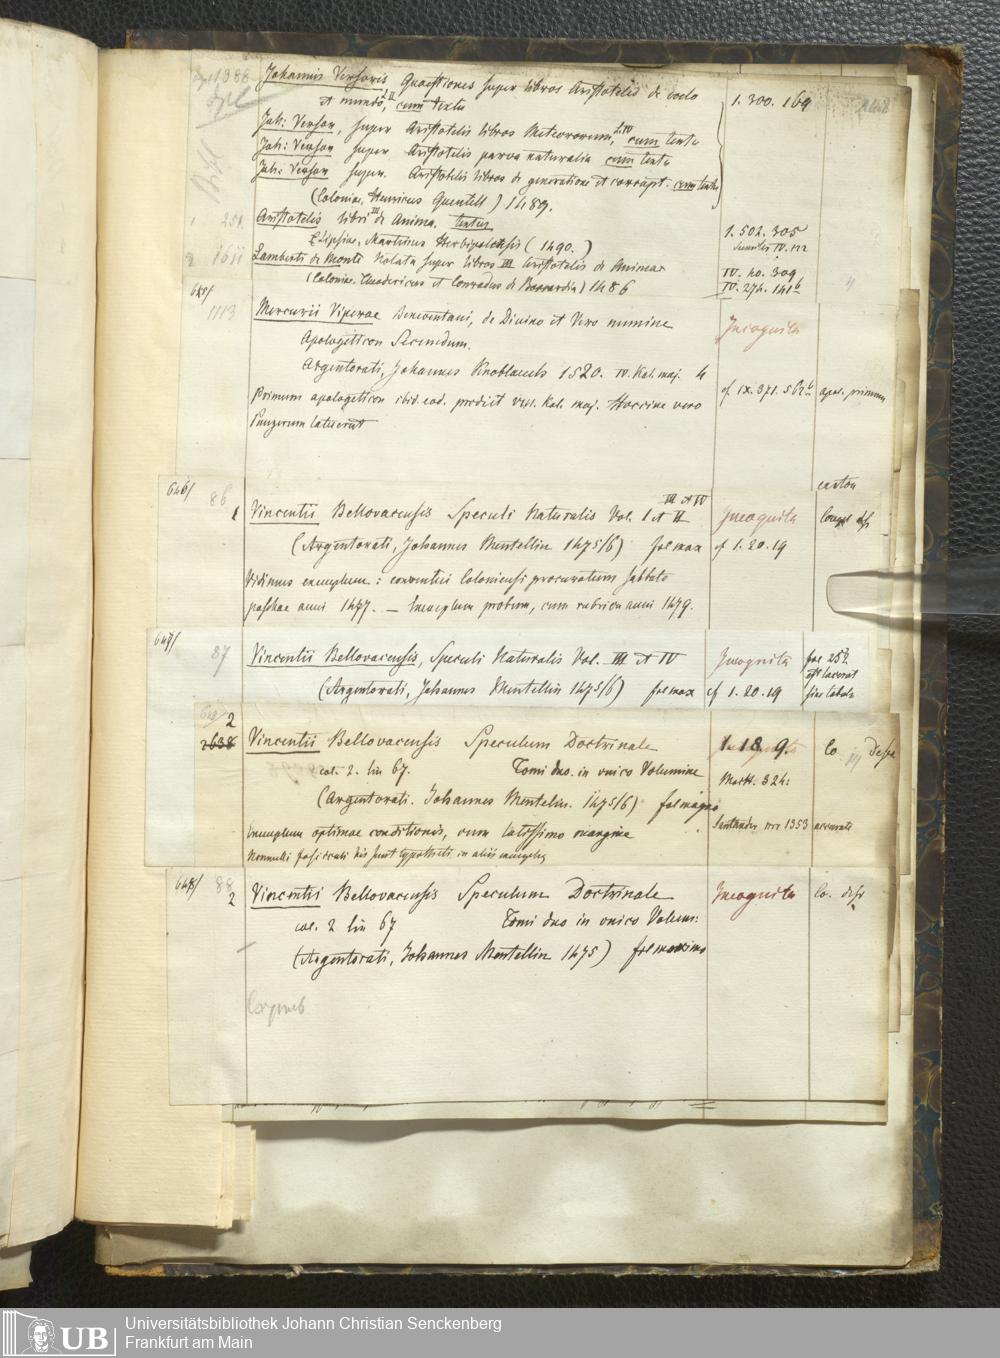 1388
Johannis Versoris Quaestiones super libros Aristotelis de coelo 1. 300. 169
et mundo, II cum textu
Joh: Versor, super Aristotelis libros Meteororum, L. IV cum textu
Joh: Versor super Aristotelis parva naturalia cum textu
Joh: Versor super Aristotelis libros de generatione et corrupt. cum textu
(Coloniae, Henricus Quentell) 1489.
1 251. Aristotelis libri III de Anima. textus 1. 502. 305
Lipsiae, Martinus Herbipolensis (1490.)
2 1611 Lamberti de Monte Notata super libros III Aristotelis de Anima IV. no. 309
(Coloniae, Theodericus et Conradus de Boppardia) 1486 IV. 274. 141b
645/ 1113 Mercurii Viperae Beneventani, de Divino et Vero numine Incognita
Apologeticon Secundum.
Argentorati, Johannes Knoblauch 1520. IV. Kal. maj. 4
Primum apologeticon ibid. eod. prodiit VIII. Kal. maj. Hoccine vero cf. IX. 371. 562b apol. primum
Panzerum latuerat
646/ 86 III et IV
Vincentii Bellovacensis Speculi Naturalis Vol. I et II Incognita
(Argentorati, Johannes Mentellin 1475/6) fol max cf 1. 20. 19
Vidimus exemplum: conventui Coloniensi procuratum sabbato
paschae anni 1477. — Exemplum probum, cum rubrica anni 1479.
647/ 87 Vincentii Bellovacensis, Speculi Naturalis Vol. III et IV Incognita fol 252.
est lacerat
(Argentorati, Johannes Mentellin 1475/6) fol max cf 1. 20. 19 sine tabula
2
2638 Vincentii Bellovacensis Speculum Doctrinale 1. 18. 9. Co
col. 2. lin 67. Tomi duo. in unico Volumine
(Argentorati. Johannes Mentelin. 1475/6) fol magno 324:
Exemplum optimae conditionis, cum latissimo margine Santander nr 1353 accurate
Nonnulli fasciculi bis sunt typothesi in aliis exemplis
648/ 88 2 Vincentii Bellovacensis Speculum Doctrinale Incognita Co.
col. 2 lin 67 Tomi duo in unico Volum:
(Argentorati, Johannes Mentellin 1475) fol maximo
UB Universitätsbibliothek Johann Christian Senckenberg
Frankfurt am Main